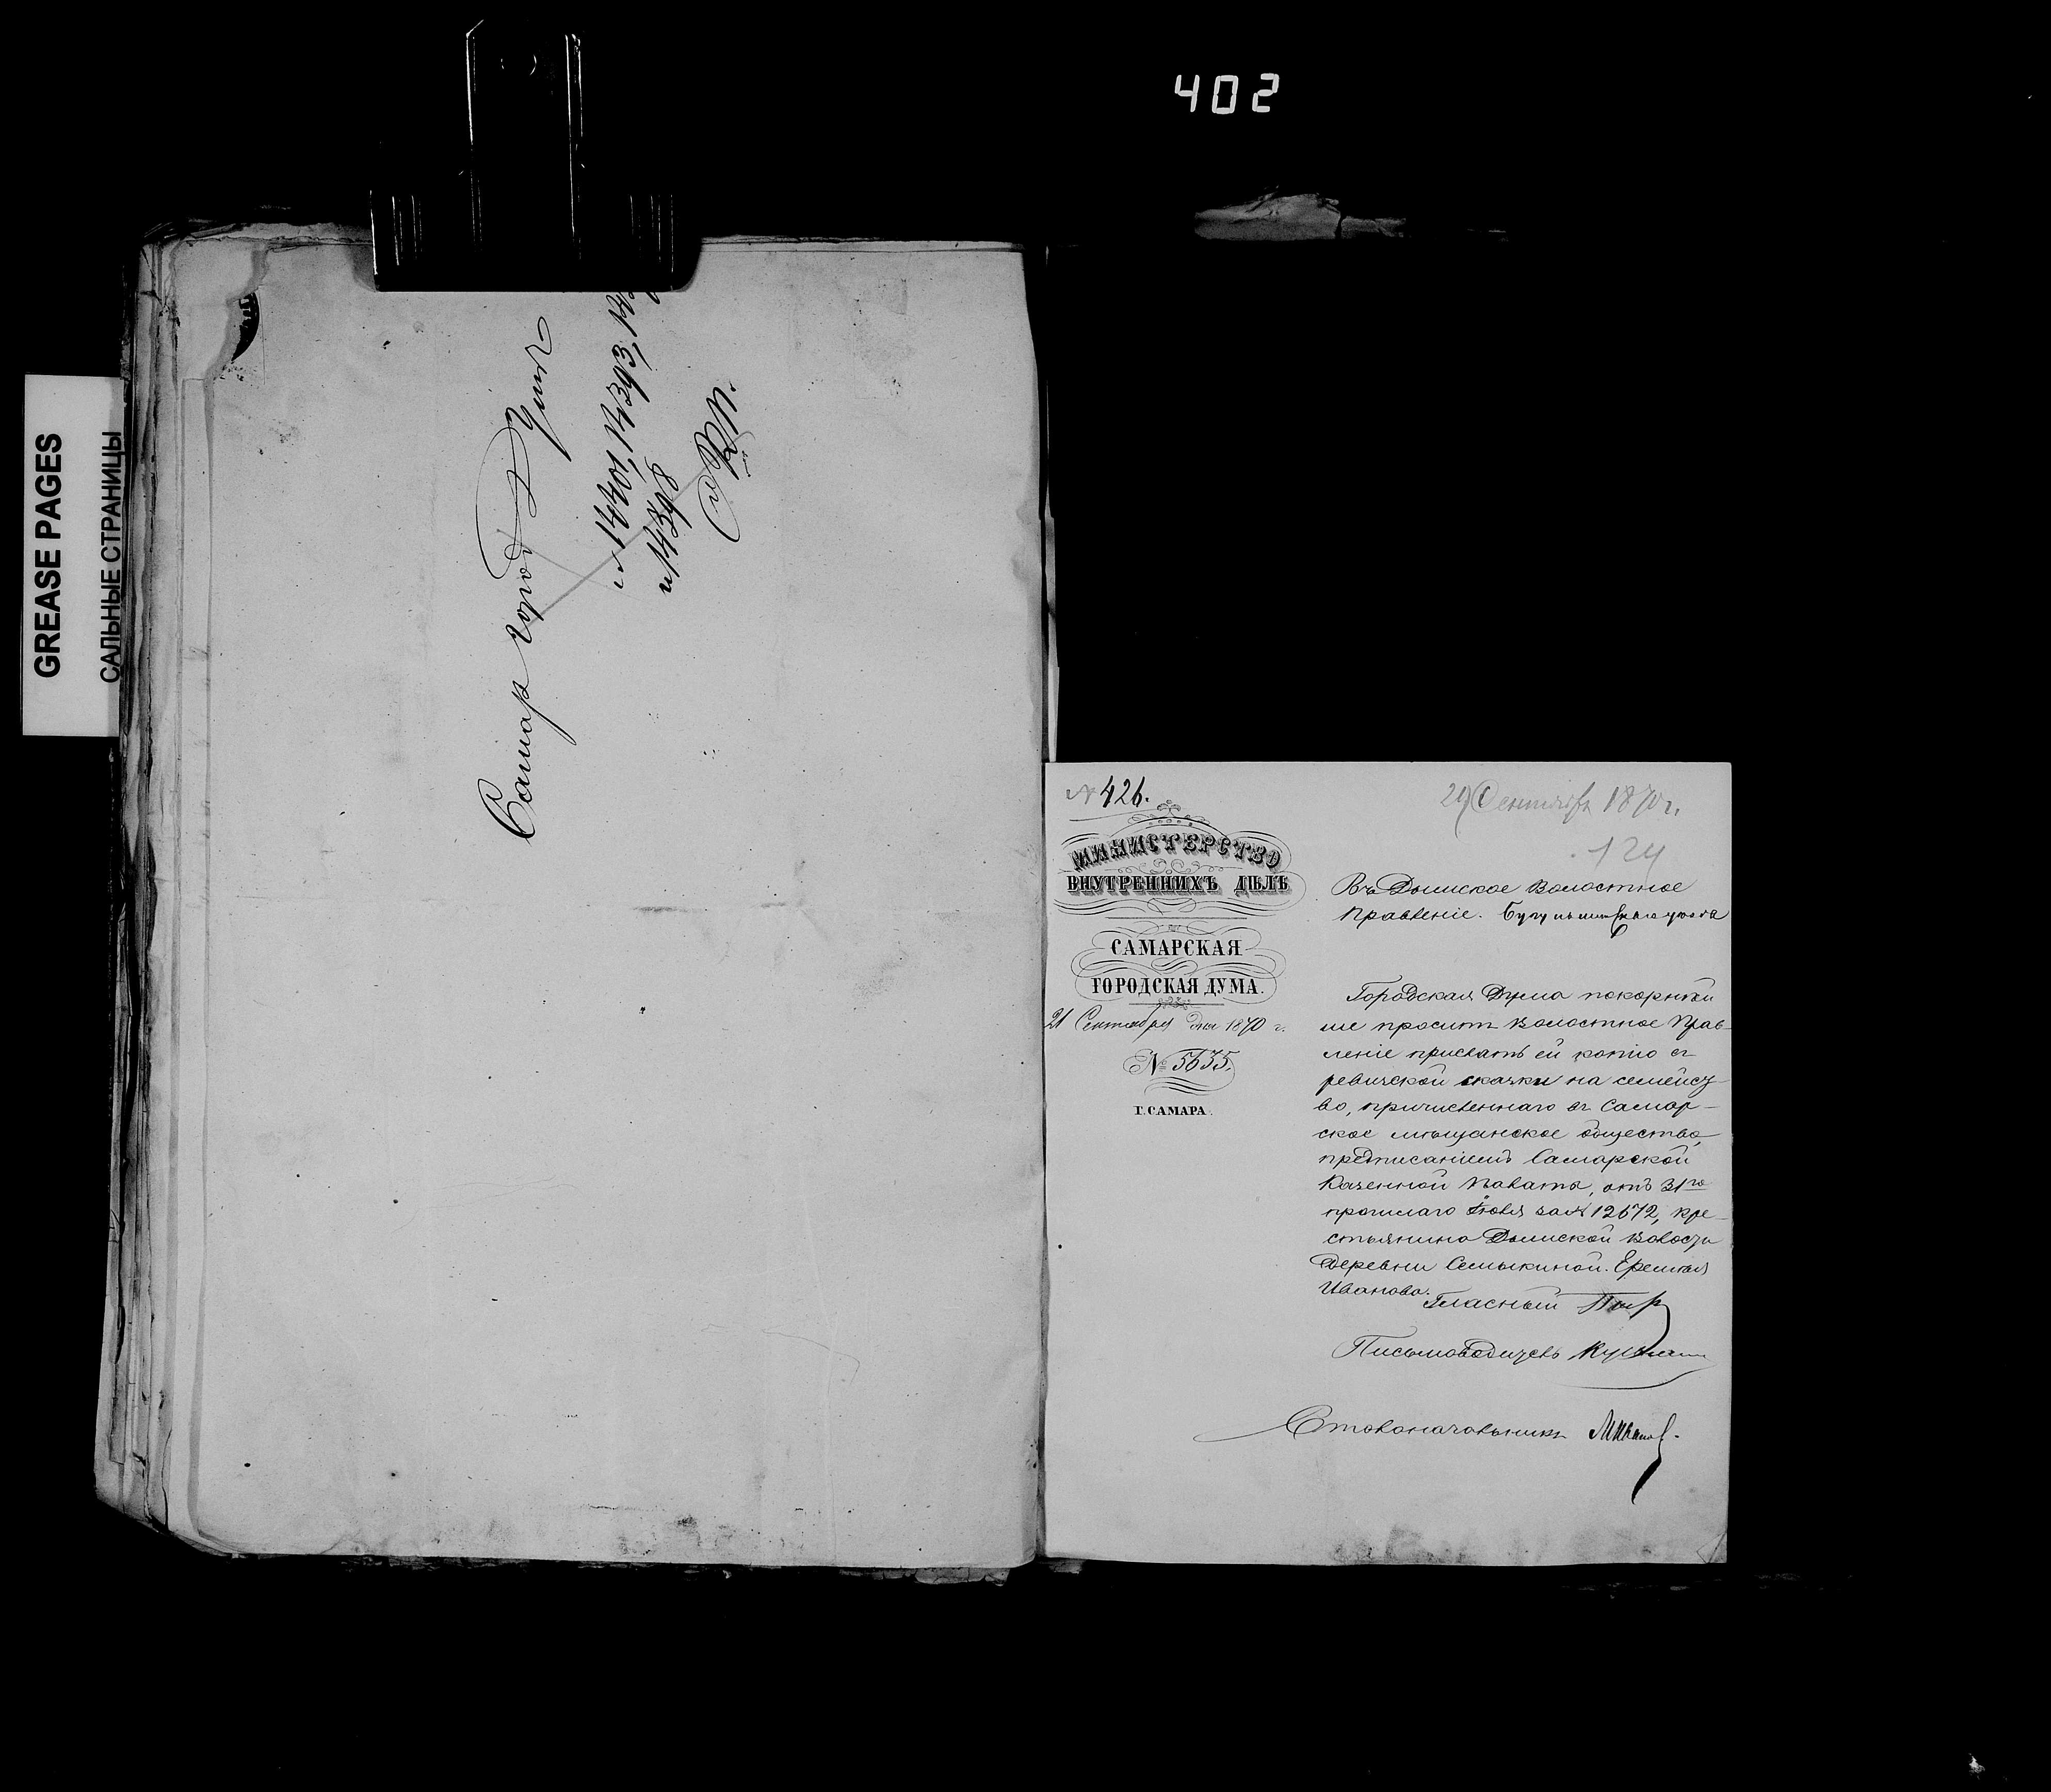 402
GREASE PAGES
САЛЬНЫЕ СТРАНИЦЫ
Самар город Думт
14401, 14393, 14
и 14398
№ 426.
29 Сентября 1870 г.
124
МИНИСТЕРСТВО
ВНУТРЕННИХЪ ДѢЛЪ
САМАРСКАЯ
ГОРОДСКАЯ ДУМА.
21 Сентября дня 1870 г.
№ 5635.
Г. САМАРА.
Въ Дымское Волостное
Правленіе. Бугульминскаго уѣзда
Городская Дума покорнѣй
ше проситъ Волостное Прав-
леніе прислать ей копію съ
ревизской сказки на семейст-
во, причисленнаго въ Самар-
ское мѣщанское общество,
предписаніемъ Самарской
Казенной Палаты, отъ 31го
прошлаго Іюля за № 12672, кре-
стьянина Дымской Волости
Деревни Семыкиной. Еремѣя
Иванова.
Гласный
Письмоводитель
Столоначальникъ